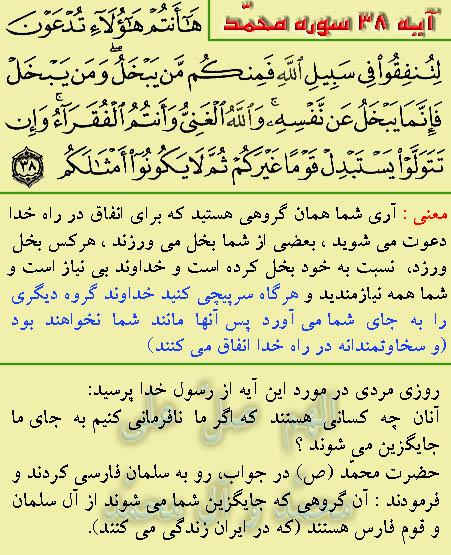 آیه ۳۸ سوره محمّد
هَٰٓأَنتُمْ هَٰٓؤُلَآءِ تُدْعَوْنَ
لِتُنفِقُوا۟ فِى سَبِيلِ ٱللَّهِ فَمِنكُم مَّن يَبْخَلُ ۖ وَمَن يَبْخَلْ
فَإِنَّمَا يَبْخَلُ عَن نَّفْسِهِۦ ۚ وَٱللَّهُ ٱلْغَنِىُّ وَأَنتُمُ ٱلْفُقَرَآءُ ۚ وَإِن
تَتَوَلَّوْا۟ يَسْتَبْدِلْ قَوْمًا غَيْرَكُمْ ثُمَّ لَا يَكُونُوٓا۟ أَمْثَٰلَكُم ۝٣٨
معنی : آری شما همان گروهی هستید که برای انفاق در راه خدا
دعوت می شوید ، بعضی از شما بخل می ورزند ، هرکس بخل
ورزد، نسبت به خود بخل کرده است و خداوند بی نیاز است و
شما همه نیازمندید و هرگاه سرپیچی کنید خداوند گروه دیگری
را به جای شما می آورد پس آنها مانند شما نخواهند بود
(و سخاوتمندانه در راه خدا انفاق می کنند)
روزی مردی در مورد این آیه از رسول خدا پرسید:
آنان چه کسانی هستند که اگر ما نافرمانی کنیم به جای ما
جایگزین می شوند ؟
حضرت محمّد (ص) در جواب، رو به سلمان فارسی کردند و
فرمودند : آن گروهی که جایگزین شما می شوند از آل سلمان
و قوم فارس هستند (که در ایران زندگی می کنند).
الهم صل علی
محمّد و آل محمّد